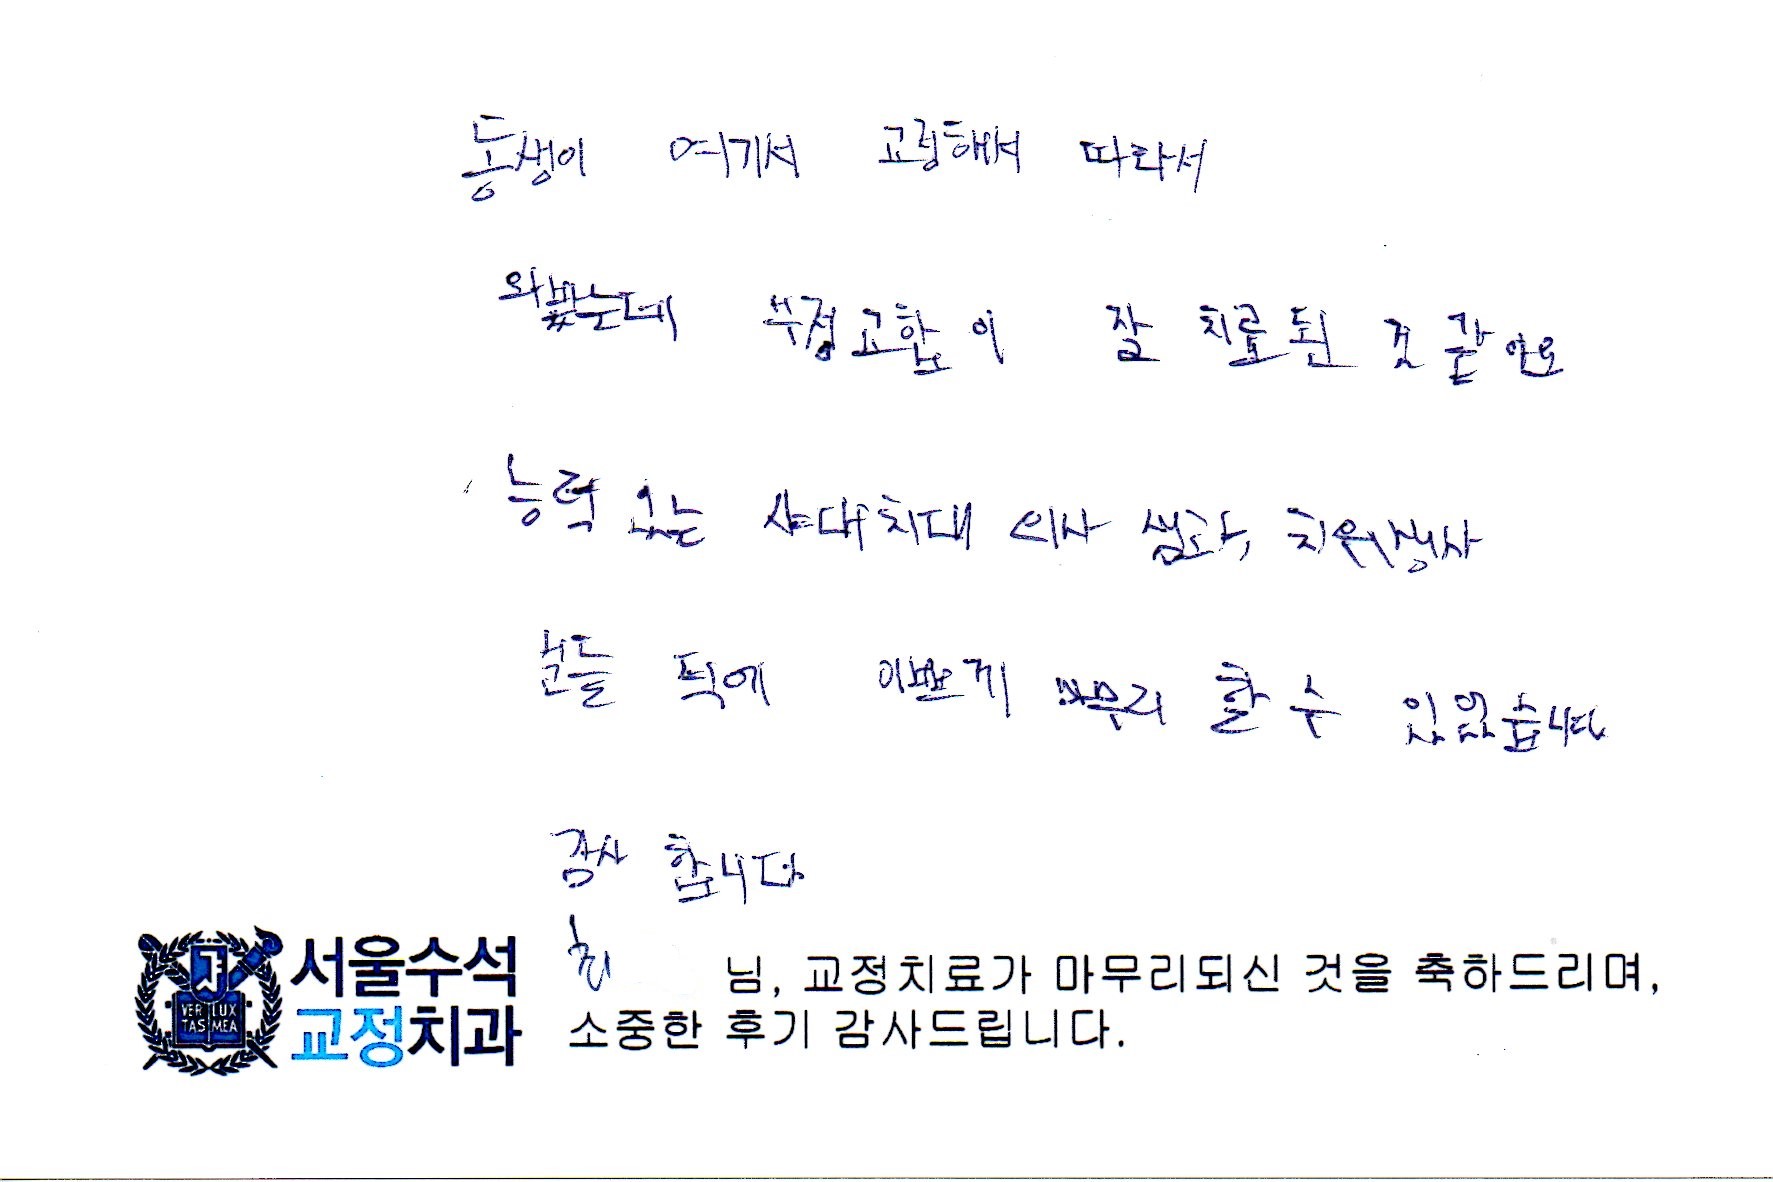 동생이 여기서 교정해서 따라서
와봤는데 부정교합이 잘 치료된 것 같아요
능력 있는 서울대치대 의사 쌤과, 치위생사
분들 덕에 이쁘게 마무리 할 수 있었습니다
감사 합니다
최 님, 교정치료가 마무리되신 것을 축하드리며,
소중한 후기 감사드립니다.
서울수석
교정치과
VERI LUX
TAS MEA